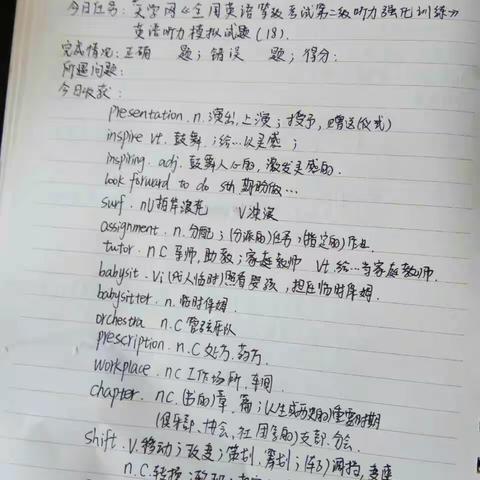 今日任务：文学网《全国英语等级考试第二级听力强化训练》
英语听力模拟试题(18).
完成情况：正确 题；错误 题；得分：
所遇问题：
今日收获：
presentation. n. 演出，上演；授予，赠送(仪式)
inspire vt. 鼓舞；给…以灵感；
inspiring. adj. 鼓舞人心的，激发灵感的.
look forward to do sth 期盼做…
surf. nU 拍岸浪花 V 冲浪
assignment. n. 分配；(分派的)任务，(指定的)作业.
tutor. n C 导师，助教；家庭教师 vt. 给…当家庭教师.
babysit. Vi (代人临时)照看婴孩，担任临时保姆.
babysitter. n. 临时保姆.
orchestra n.C 管弦乐队
prescription. n.C 处方. 药方.
workplace. n C 工作场所，车间.
chapter. n C. (书的)章、篇；(人生或历史的)重要时期
(俱乐部、协会、社团等的)支部. 分会.
shift. V. 移动；改变；策划，筹划；(车)调挡，变速
n. C. 转换；